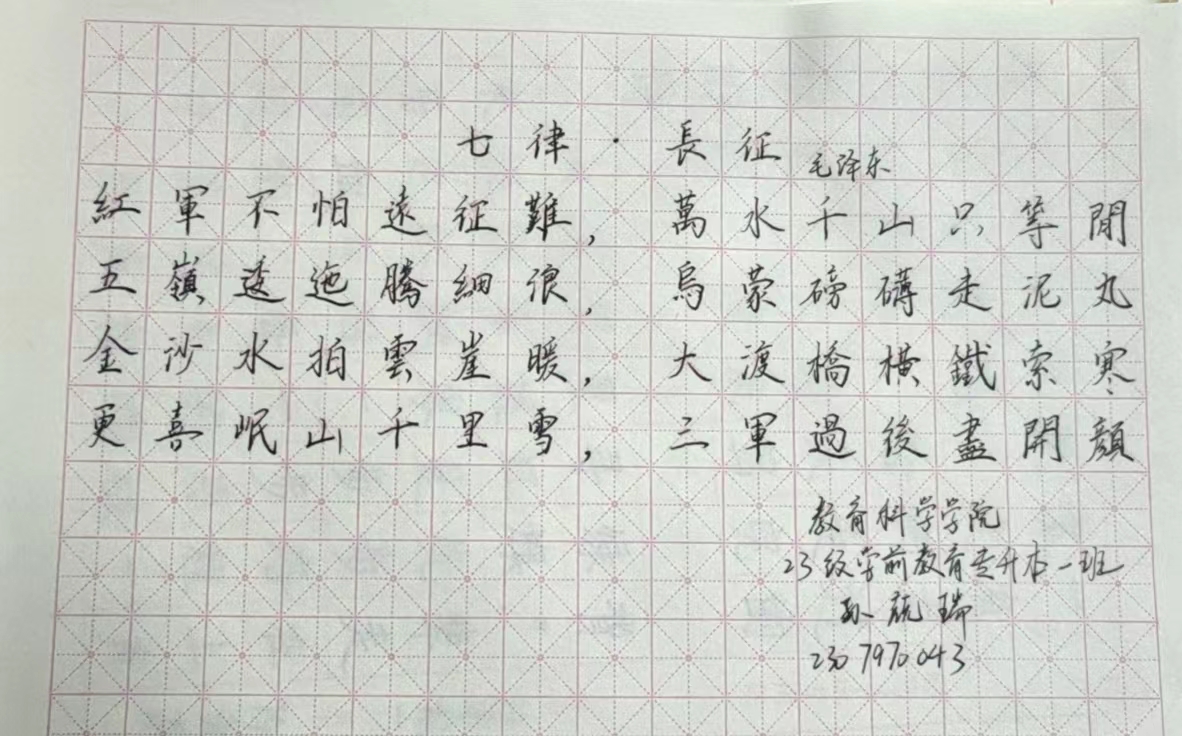 七律·長征
毛泽东
紅軍不怕遠征難,萬水千山只等閒
五嶺逶迤騰細浪,烏蒙磅礴走泥丸
金沙水拍雲崖暖,大渡橋橫鐵索寒
更喜岷山千里雪,三軍過後盡開顏
教育科学学院
23级学前教育专升本一班
孙 瑞
2307970043